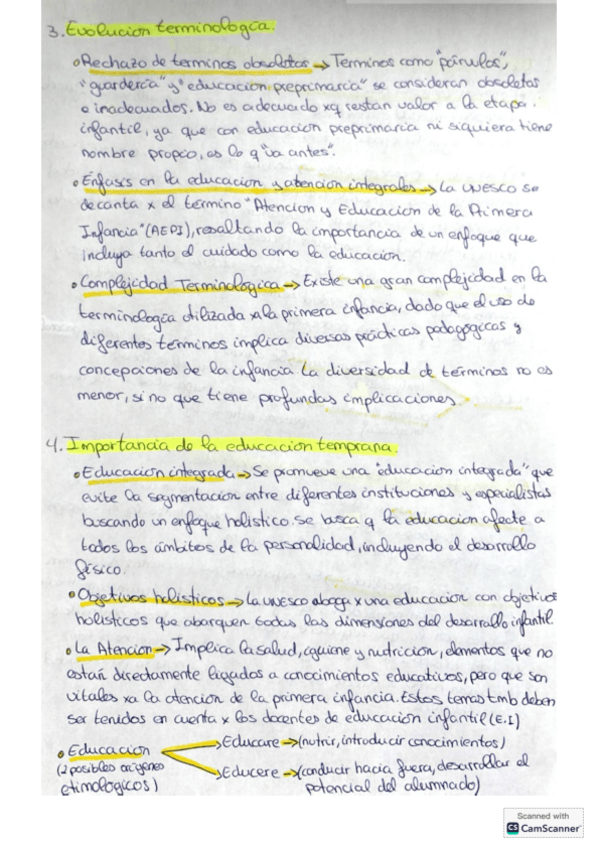 3. Evolucion terminologica.
• Rechazo de terminos obsoletos → Terminos como "párvulos",
"guardería" y "educacion preprimaria" se consideran obsoletos
o inadecuados. No es adecuado xq restan valor a la etapa
infantil, ya que con educacion preprimaria ni siquiera tiene
nombre propio, es lo q "va antes".
• Enfasis en la educacion y atencion integrales → La UNESCO se
decanta x el termino "Atencion y Educacion de la Primera
Infancia" (AEPI), resaltando la importancia de un enfoque que
incluya tanto el cuidado como la educacion.
• Complejidad Terminologica → Existe una gran complejidad en la
terminologia utilizada xa la primera infancia, dado que el uso de
diferentes terminos implica diversas prácticas pedagógicas y
concepciones de la infancia. La diversidad de terminos no es
menor, si no que tiene profundas implicaciones.
4. Importancia de la educacion temprana.
• Educacion integrada → Se promueve una "educacion integrada" que
evite la segmentacion entre diferentes instituciones y especialistas
buscando un enfoque holistico. Se busca q la educacion afecte a
todos los ámbitos de la personalidad, incluyendo el desarrollo
físico.
• Objetivos holisticos → La UNESCO aboga x una educacion con objetivos
holisticos que abarquen todas las dimensiones del desarrollo infantil.
• La Atencion → Implica la salud, higiene y nutrición, elementos que no
están directamente ligados a conocimientos educativos, pero que son
vitales xa la atencion de la primera infancia. Estos temas tmb deben
ser tenidos en cuenta x los docentes de educacion infantil (E.I)
• Educacion → Educare → (nutrir, introducir conocimientos)
(2 posibles origenes → Educere → (conducir hacia fuera, desarrollar el
etimologicos) potencial del alumnado)
Scanned with
CS CamScanner